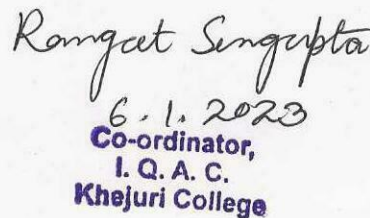 Rangeet Sengupta
6.1.2023
Co-ordinator,
I. Q. A. C.
Khejuri College